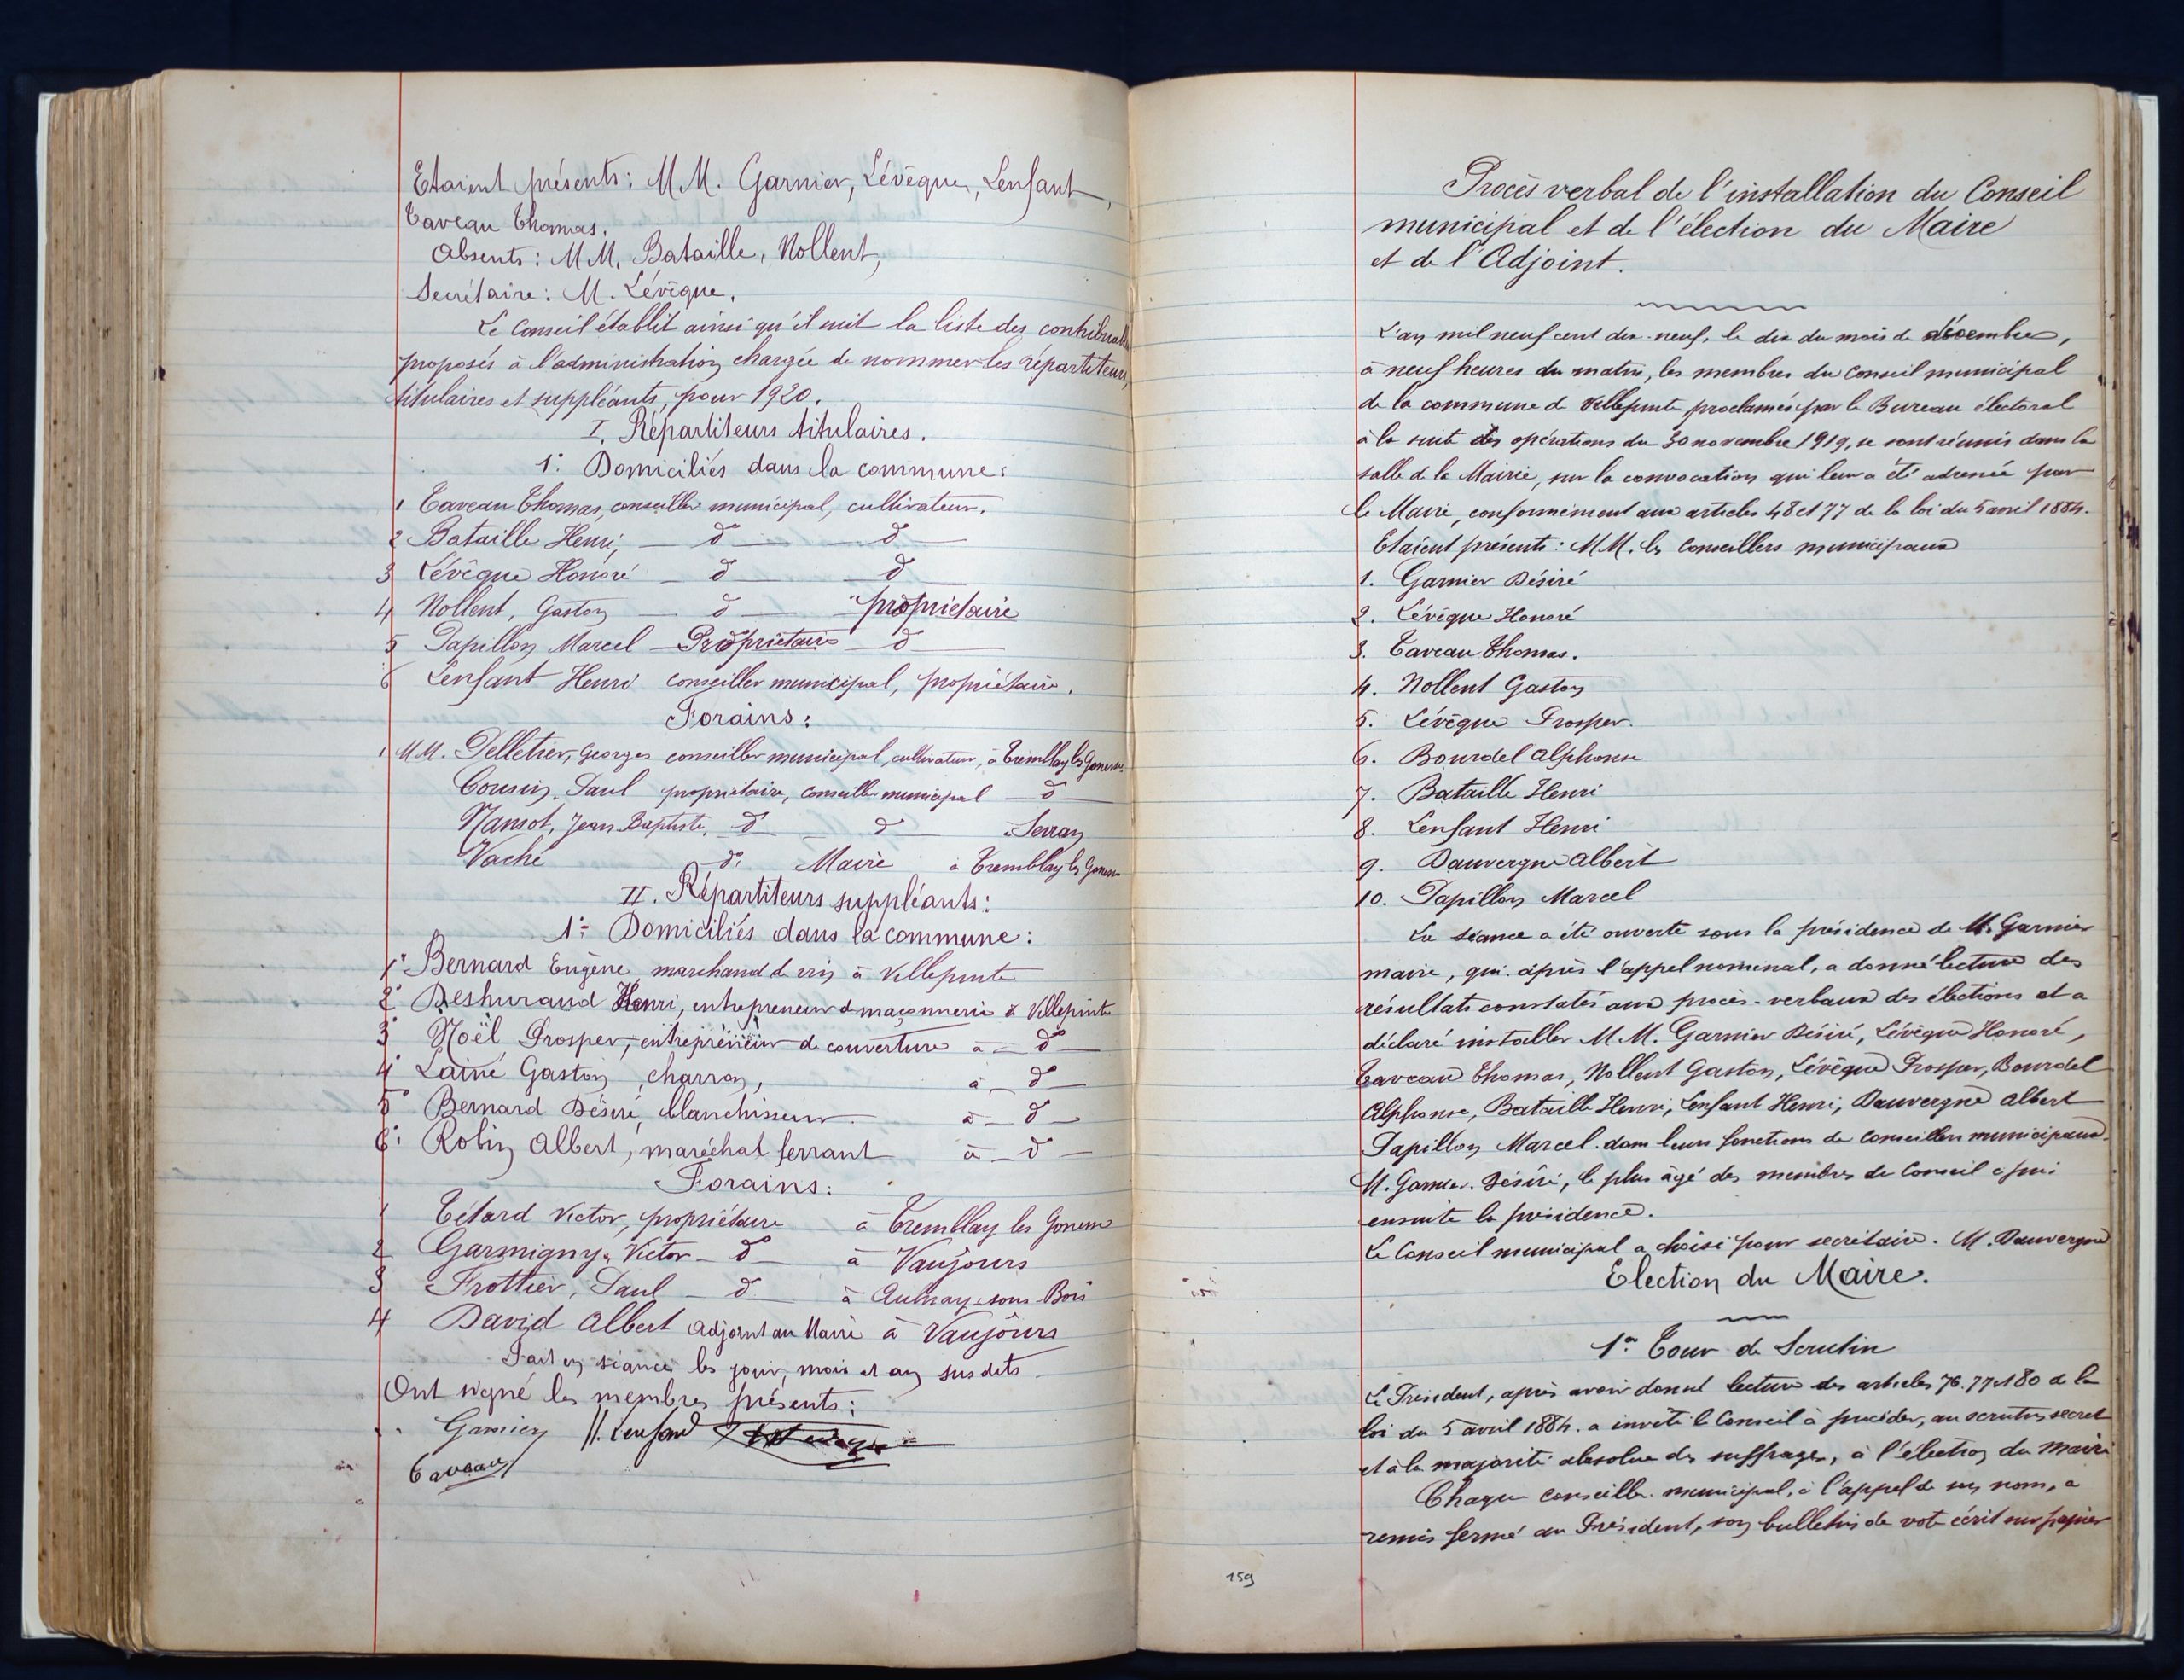 Etaient présents: MM. Garnier, Lévêque, Lenfant,
Caveau Thomas.
Absents: MM. Bataille, Nollent,
Secrétaire: M. Lévêque.
Le Conseil établit ainsi qu'il suit la liste des contribuables
proposés à l'administration chargée de nommer les répartiteurs,
titulaires et suppléants, pour 1920.
I. Répartiteurs titulaires.
1° Domiciliés dans la commune:
1 Caveau Thomas, conseiller municipal, cultivateur.
2 Bataille Henri, — d° — d° —
3 Lévêque Honoré — d° — d°
4 Nollent, Gaston — d° — propriétaire
5 Papillon Marcel — Propriétaire — d° —
6 Lenfant Henri conseiller municipal, propriétaire.
Forains:
1 MM. Pelletier, Georges conseiller municipal, cultivateur, à Tremblay les Gonesse
Cousin, Paul propriétaire, conseiller municipal — d° —
Mansot, Jean-Baptiste, d° — d° — à Sevran
Vaché — d°. Maire à Tremblay les Gonesse
II. Répartiteurs suppléants:
1° Domiciliés dans la commune:
1° Bernard Eugène marchand de vin à Villepinte
2° Deshuraud Henri, entrepreneur de maçonnerie à Villepinte
3° Noël Prosper, entrepreneur de couverture à — d° —
4° Lainé Gaston, charron, à — d° —
5° Bernard Désiré, blanchisseur. à — d° —
6° Robin Albert, maréchal ferrant à — d° —
Forains:
1 Tétard Victor, propriétaire à Tremblay les Gonesse
2 Garmigny, Victor — d° — à Vaujours
3 Frottier, Paul — d° — à Aulnay-sous-Bois
4 David Albert Adjoint au Maire à Vaujours
Fait en séance les jour, mois et an susdits
Ont signé les membres présents:
Garnier H. Lenfant
Caveau
Procès verbal de l'installation du Conseil
municipal et de l'élection du Maire
et de l'Adjoint.
L'an mil neuf cent dix-neuf, le dix du mois de décembre,
à neuf heures du matin, les membres du Conseil municipal
de la commune de Villepinte proclamés par le Bureau électoral
à la suite des opérations du 30 novembre 1919, se sont réunis dans la
salle de la Mairie, sur la convocation qui leur a été adressée par
le Maire, conformément aux articles 48 et 77 de la loi du 5 avril 1884.
Etaient présents: MM. les Conseillers municipaux
1. Garnier Désiré
2. Lévêque Honoré
3. Caveau Thomas.
4. Nollent Gaston
5. Lévêque Prosper.
6. Bourdel Alphonse
7. Bataille Henri
8. Lenfant Henri
9. Dauvergne Albert
10. Papillon Marcel
La séance a été ouverte sous la présidence de M. Garnier
maire, qui après l'appel nominal, a donné lecture des
résultats constatés aux procès-verbaux des élections et a
déclaré installer MM. Garnier Désiré, Lévêque Honoré,
Caveau Thomas, Nollent Gaston, Lévêque Prosper, Bourdel
Alphonse, Bataille Henri, Lenfant Henri, Dauvergne Albert
Papillon Marcel. dans leurs fonctions de Conseillers municipaux.
M. Garnier. Désiré, le plus âgé des membres du Conseil a pris
ensuite la présidence.
Le Conseil municipal a choisi pour secrétaire. M. Dauvergne
Election du Maire.
1er Tour de Scrutin
Le Président, après avoir donné lecture des articles 76. 77 et 80 de la
loi du 5 avril 1884. a invité le Conseil à procéder, au scrutin secret
et à la majorité absolue des suffrages, à l'élection du Maire
Chaque conseiller municipal, à l'appel de son nom, a
remis fermé au Président, son bulletin de vote écrit sur papier
159